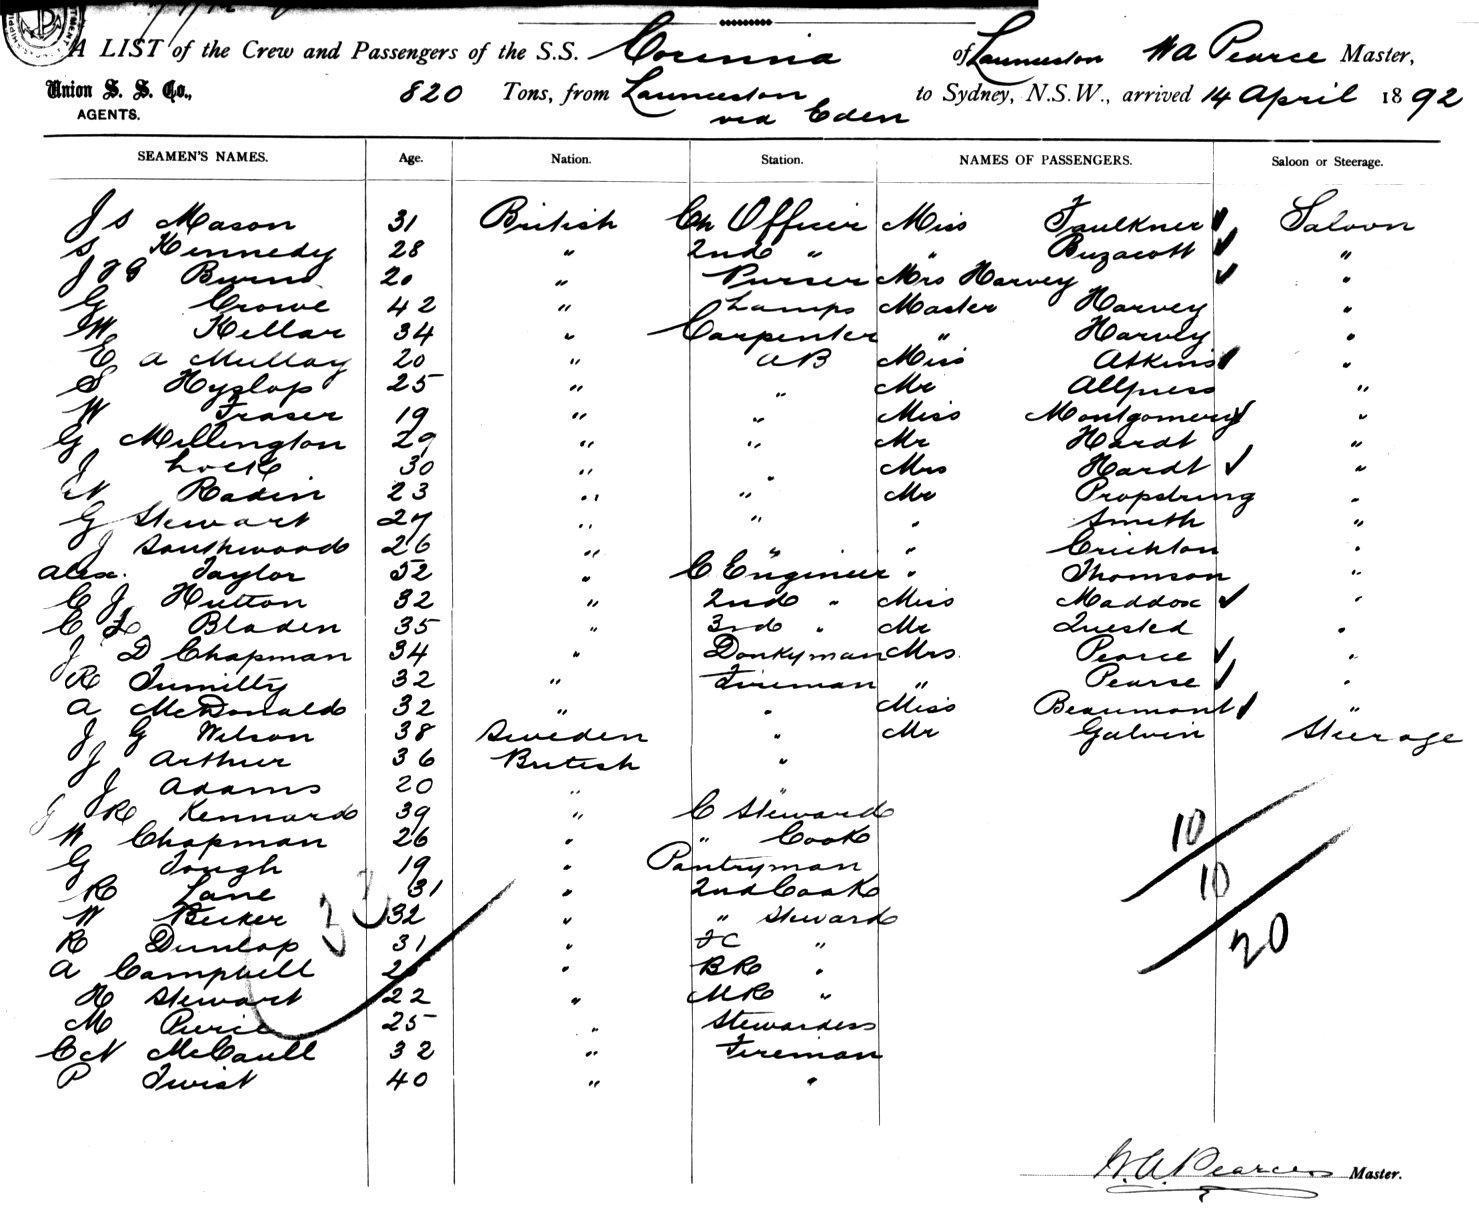 A LIST of the Crew and Passengers of the S.S. Corinna of Launceston W A Pearce Master,
Union S. S. Co., AGENTS. 820 Tons, from Launceston via Eden to Sydney, N.S.W., arrived 14 April 1892
SEAMEN'S NAMES. Age. Nation. Station. NAMES OF PASSENGERS. Saloon or Steerage.
J S Mason 31 British Ch Officer Miss Faulkner ✓ Saloon
S Kennedy 28 " 2nd " " Buzacott ✓ "
J F G Burns 20 " Purser Mrs Harvey ✓ "
G Crowe 42 " Lamps Master Harvey "
W Kellar 34 " Carpenter " Harvey "
E A Mullay 20 " AB Miss Atkins ✓ "
S Hyslop 25 " " Mr Allpress "
W Fraser 19 " " Miss Montgomery ✓ "
G Millington 29 " " Mr Hardt "
J Lock 30 " " Mrs Hardt ✓ "
N Radin 23 " " Mr Propstring "
G Stewart 27 " " " Smith "
J Southwood 26 " " " Crickton "
Alex. Taylor 52 " C Engineer " Thomson "
C J Hutton 32 " 2nd " Miss Maddox ✓ "
C L Bladen 35 " 3rd " Mr Quested "
J D Chapman 34 " Donkyman Mrs. Pearce ✓ "
R Tumilty 32 " Fireman " Pearse ✓ "
A McDonald 32 " " Miss Beaumont ✓ "
J G Wilson 38 Sweden " Mr Galvin Steerage
J Arthur 36 British "
J Adams 20 " "
J R Kennard 39 " C Steward
W Chapman 26 " " Cook
G Tough 19 " Pantryman
R Lane 31 " 2nd Cook
W Becker 32 " " Steward
R Dunlop 31 " FC "
A Campbell 25 " BR "
H Stewart 22 " MR "
M Purie 25 " Stewardess
C N McCaull 32 " Fireman
P Twist 40 " "
33
10
10
20
W. A. Pearce Master.